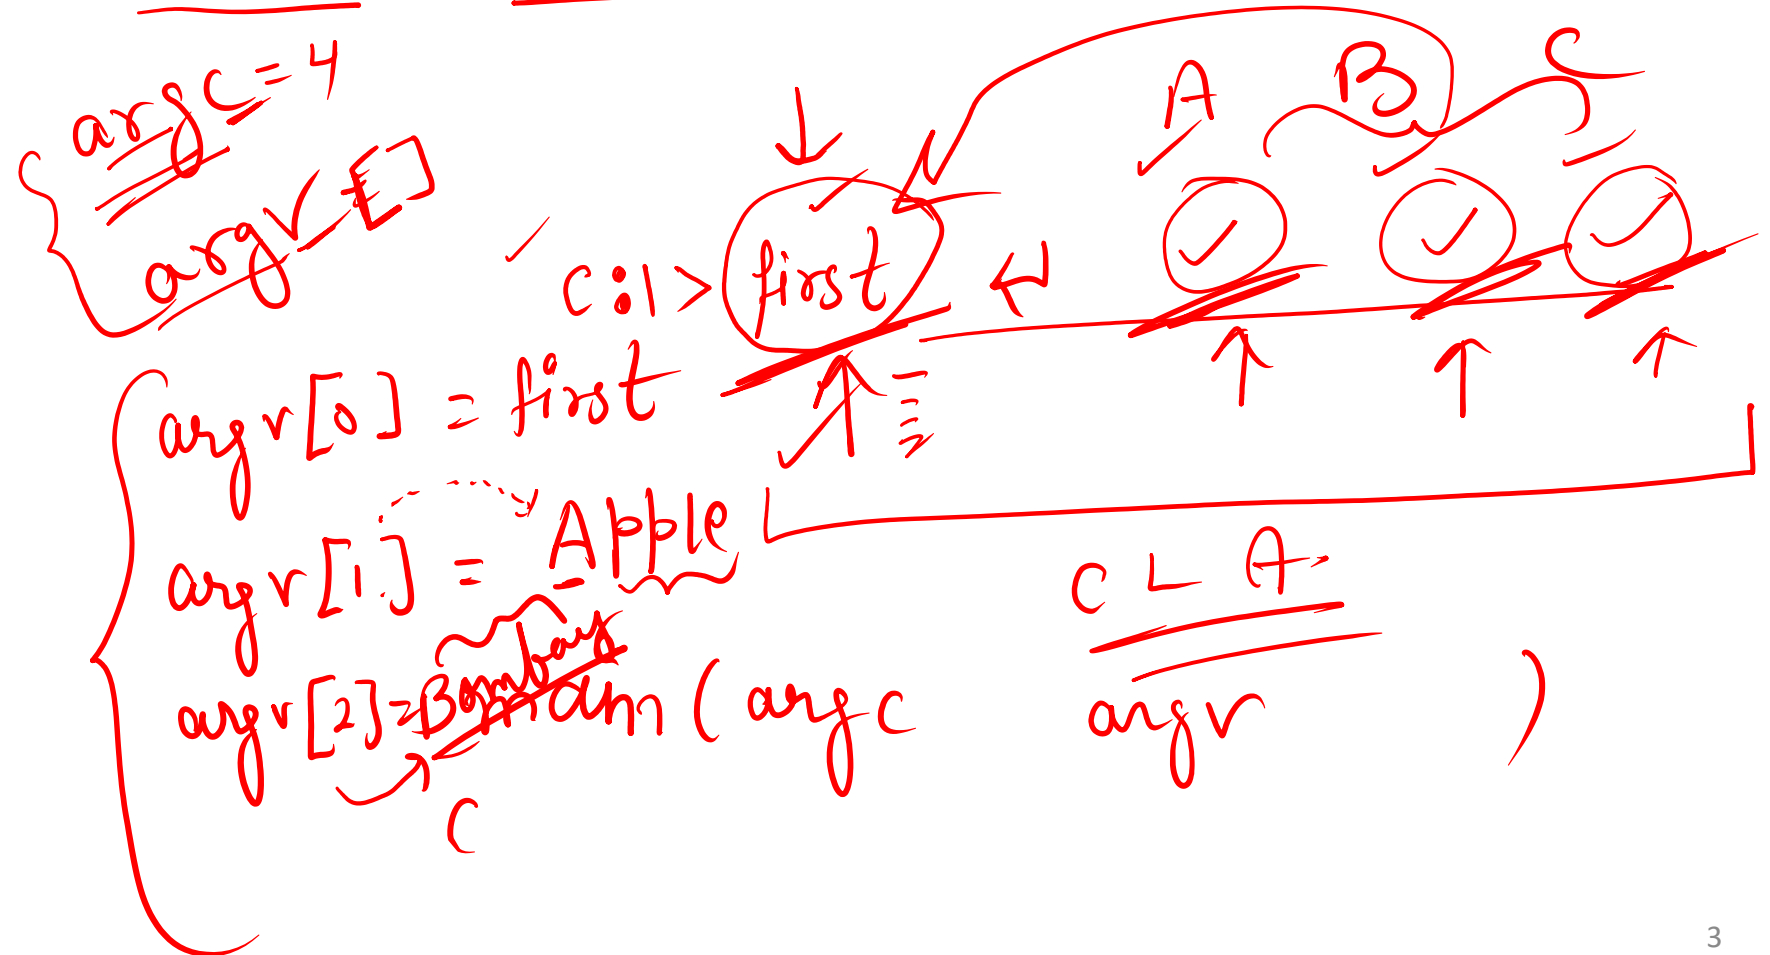 argc = 4
argv []
A B C
c:\> first
argv[0] = first
argv[1] = Apple
C L A
argv[2] = Bombay
main ( argc argv )
C
3